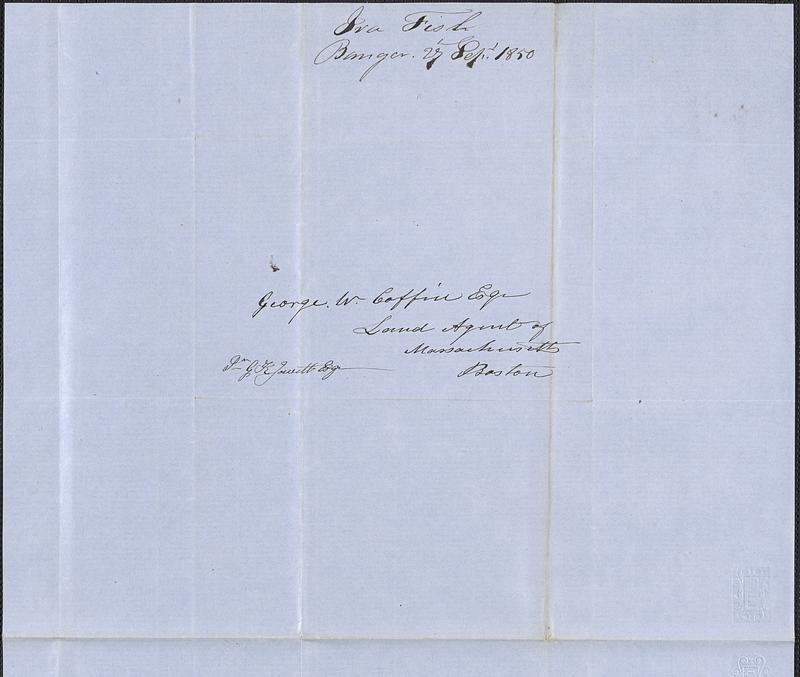 Ira Fish
Bangor. 27 Sept. 1850
George. W. Coffin Esqr
Land Agent of
Massachusetts
Boston
G. K. Jewett Esq